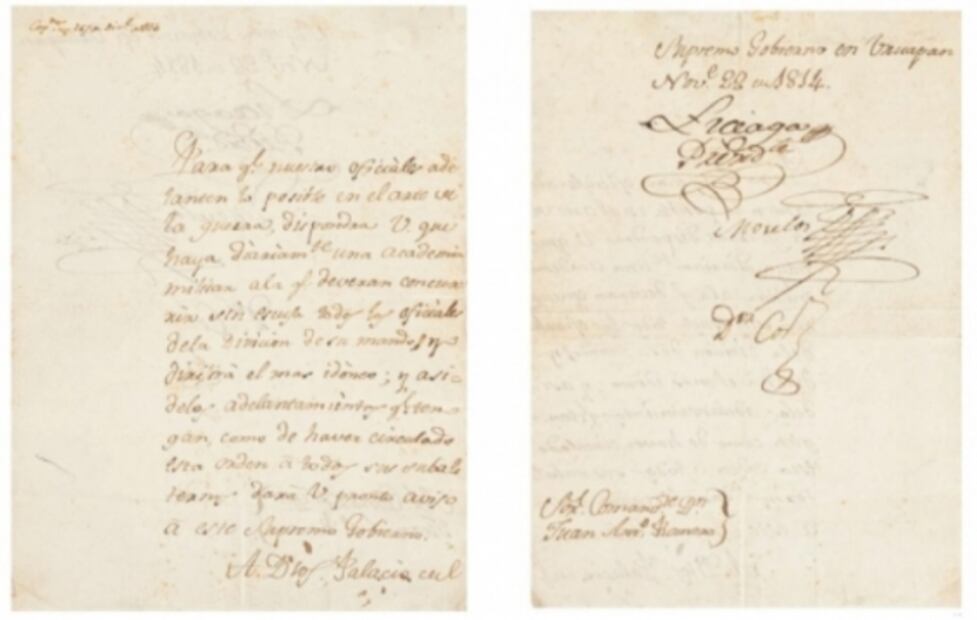 Para q.e nuestros oficiales ade
lanten lo posible en el arte de
la guerra, dispondra V. que
haya diariam.te una academia
militar a la q.e deveran concur
rir sin escusa todos los oficiales
dela Divicion de su mando, y
dirijirá el mas idoneo; y asi
delos adelantamientos q.e ten
gan, como de haver circulado
esta orden á todos sus subal
ternos dará V. pronto aviso
á este Supremo Gobierno.
A. Dios Palacio del
Supremo Gobierno en
Nov.e 28 de 1814.
Liceaga
Presid.te
Morelos
D.or Cos
Sor. Comand.te
Juan Romero